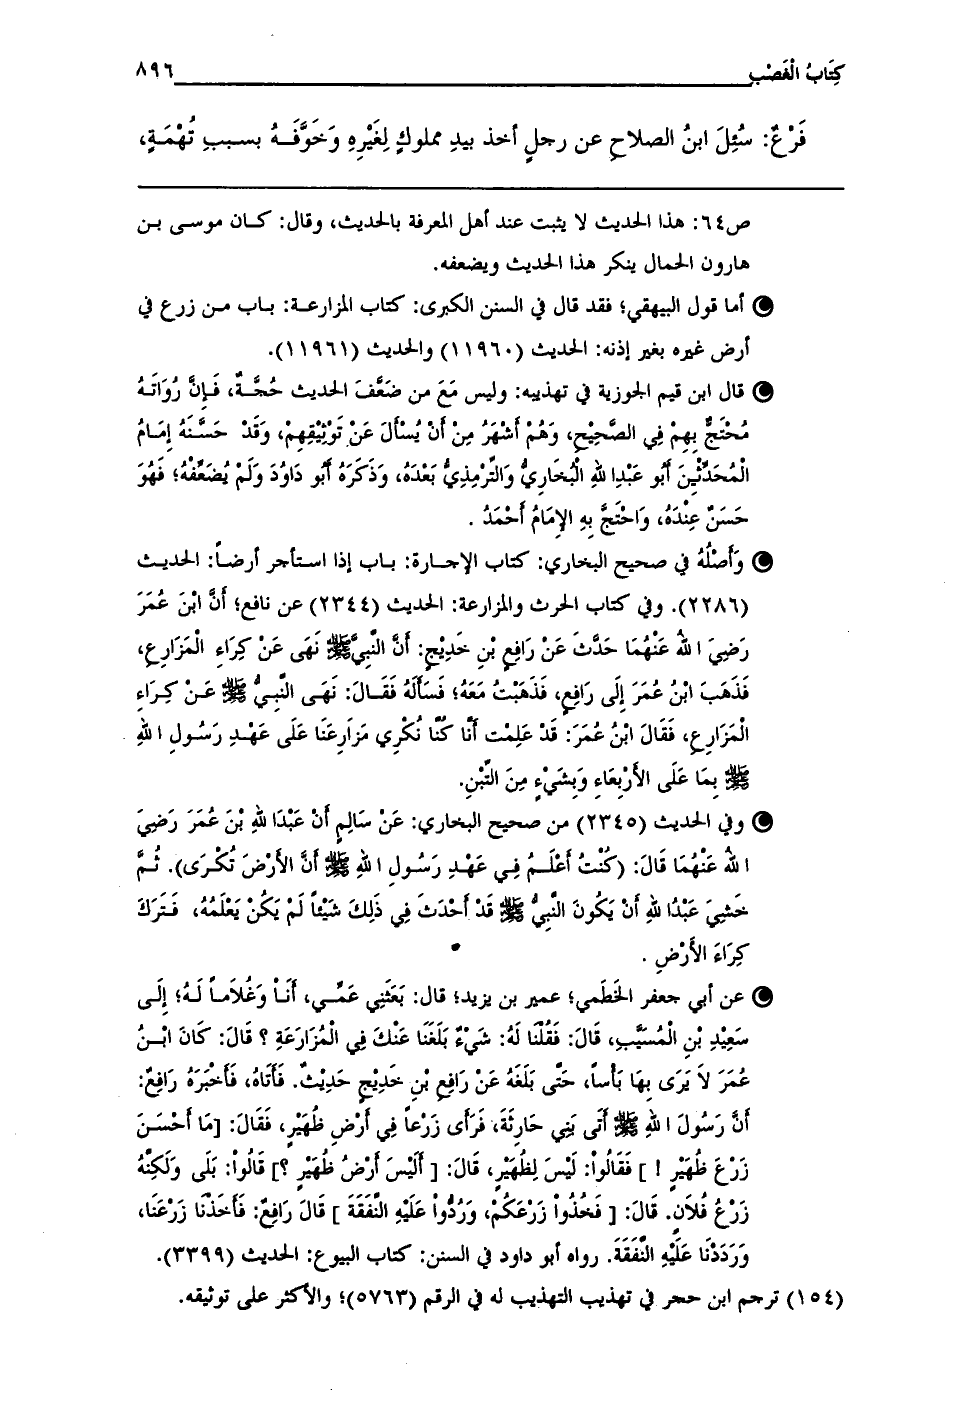 كِتَابُ الْغَصْبِ ٨٩٦
فَرْعٌ: سُئِلَ ابنُ الصلاحِ عن رجلٍ أخذ بيدِ مملوكٍ لِغَيْرِهِ وَخَوَّفَهُ بسببِ تُهْمَةٍ،
ص٦٤: هذا الحديث لا يثبت عند أهل المعرفة بالحديث، وقال: كان موسى بن
هارون الحمال ينكر هذا الحديث ويضعفه.
أما قول البيهقي؛ فقد قال في السنن الكبرى: كتاب المزارعة: باب من زرع في
أرض غيره بغير إذنه: الحديث (١١٩٦٠) والحديث (١١٩٦١).
قال ابن قيم الجوزية في تهذيبه: وليس مَعَ من ضَعَّفَ الحديث حُجَّةٌ، فَإِنَّ رُوَاتَهُ
مُحْتَجٌّ بِهِمْ فِي الصَّحِيْحِ، وَهُمْ أَشْهَرُ مِنْ أَنْ يُسْأَلَ عَنْ تَوْثِيْقِهِمْ، وَقَدْ حَسَّنَهُ إِمَامُ
الْمُحَدِّثِيْنَ أَبُو عَبْدِ اللهِ الْبُخَارِيُّ وَالتِّرْمِذِيُّ بَعْدَهُ، وَذَكَرَهُ أَبُو دَاوُدَ وَلَمْ يُضَعِّفْهُ؛ فَهُوَ
حَسَنٌ عِنْدَهُ، وَاحْتَجَّ بِهِ الإِمَامُ أَحْمَدُ .
وَأَصْلُهُ في صحيح البخاري: كتاب الإجارة: باب إذا استأجر أرضاً: الحديث
(٢٢٨٦). وفي كتاب الحرث والمزارعة: الحديث (٢٣٤٤) عن نافع؛ أَنَّ ابْنَ عُمَرَ
رَضِيَ اللهُ عَنْهُمَا حَدَّثَ عَنْ رَافِعِ بْنِ خَدِيْجٍ: أَنَّ النَّبِيَّ ﷺ نَهَى عَنْ كِرَاءِ الْمَزَارِعِ،
فَذَهَبَ ابْنُ عُمَرَ إِلَى رَافِعٍ، فَذَهَبْتُ مَعَهُ؛ فَسَأَلَهُ فَقَالَ: نَهَى النَّبِيُّ ﷺ عَنْ كِرَاءِ
الْمَزَارِعِ، فَقَالَ ابْنُ عُمَرَ: قَدْ عَلِمْتَ أَنَّا كُنَّا نُكْرِي مَزَارِعَنَا عَلَى عَهْدِ رَسُولِ اللهِ
ﷺ بِمَا عَلَى الأَرْبِعَاءِ وَبِشَيْءٍ مِنَ التِّبْنِ.
وفي الحديث (٢٣٤٥) من صحيح البخاري: عَنْ سَالِمٍ أَنَّ عَبْدَ اللهِ بْنَ عُمَرَ رَضِيَ
اللهُ عَنْهُمَا قَالَ: (كُنْتُ أَعْلَمُ فِي عَهْدِ رَسُولِ اللهِ ﷺ أَنَّ الأَرْضَ تُكْرَى). ثُمَّ
خَشِيَ عَبْدُ اللهِ أَنْ يَكُونَ النَّبِيُّ ﷺ قَدْ أَحْدَثَ فِي ذَلِكَ شَيْئاً لَمْ يَكُنْ يَعْلَمُهُ، فَتَرَكَ
كِرَاءَ الأَرْضِ .
عن أبي جعفر الخَطَمي؛ عمير بن يزيد؛ قال: بَعَثَنِي عَمِّي، أَنَا وَغُلاَماً لَهُ؛ إِلَى
سَعِيْدِ بْنِ الْمُسَيَّبِ، قَالَ: فَقُلْنَا لَهُ: شَيْءٌ بَلَغَنَا عَنْكَ فِي الْمُزَارَعَةِ ؟ قَالَ: كَانَ ابْنُ
عُمَرَ لاَ يَرَى بِهَا بَأْساً، حَتَّى بَلَغَهُ عَنْ رَافِعِ بْنِ خَدِيْجٍ حَدِيْثٌ. فَأَتَاهُ، فَأَخْبَرَهُ رَافِعٌ:
أَنَّ رَسُولَ اللهِ ﷺ أَتَى بَنِي حَارِثَةَ، فَرَأَى زَرْعاً فِي أَرْضِ ظُهَيْرٍ، فَقَالَ: [مَا أَحْسَنَ
زَرْعَ ظُهَيْرٍ ! ] فَقَالُواْ: لَيْسَ لِظُهَيْرٍ، قَالَ: [ أَلَيْسَ أَرْضُ ظُهَيْرٍ ؟] قَالُواْ: بَلَى وَلَكِنَّهُ
زَرْعُ فُلاَنٍ. قَالَ: [ فَخُذُواْ زَرْعَكُمْ، وَرُدُّواْ عَلَيْهِ النَّفَقَةَ ] قَالَ رَافِعٌ: فَأَخَذْنَا زَرْعَنَا،
وَرَدَدْنَا عَلَيْهِ النَّفَقَةَ. رواه أبو داود في السنن: كتاب البيوع: الحديث (٣٣٩٩).
(١٥٤) ترجم ابن حجر في تهذيب التهذيب له في الرقم (٥٧٦٣)؛ والأكثر على توثيقه.